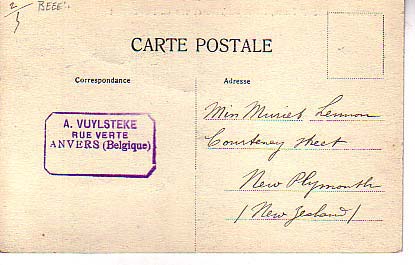 2/3 BEEE'.
CARTE POSTALE
Correspondance
Adresse
A. VUYLSTEKE
RUE VERTE
ANVERS (Belgique)
Miss Muriel Lennon
Courtenay street
New Plymouth
(New Zealand)